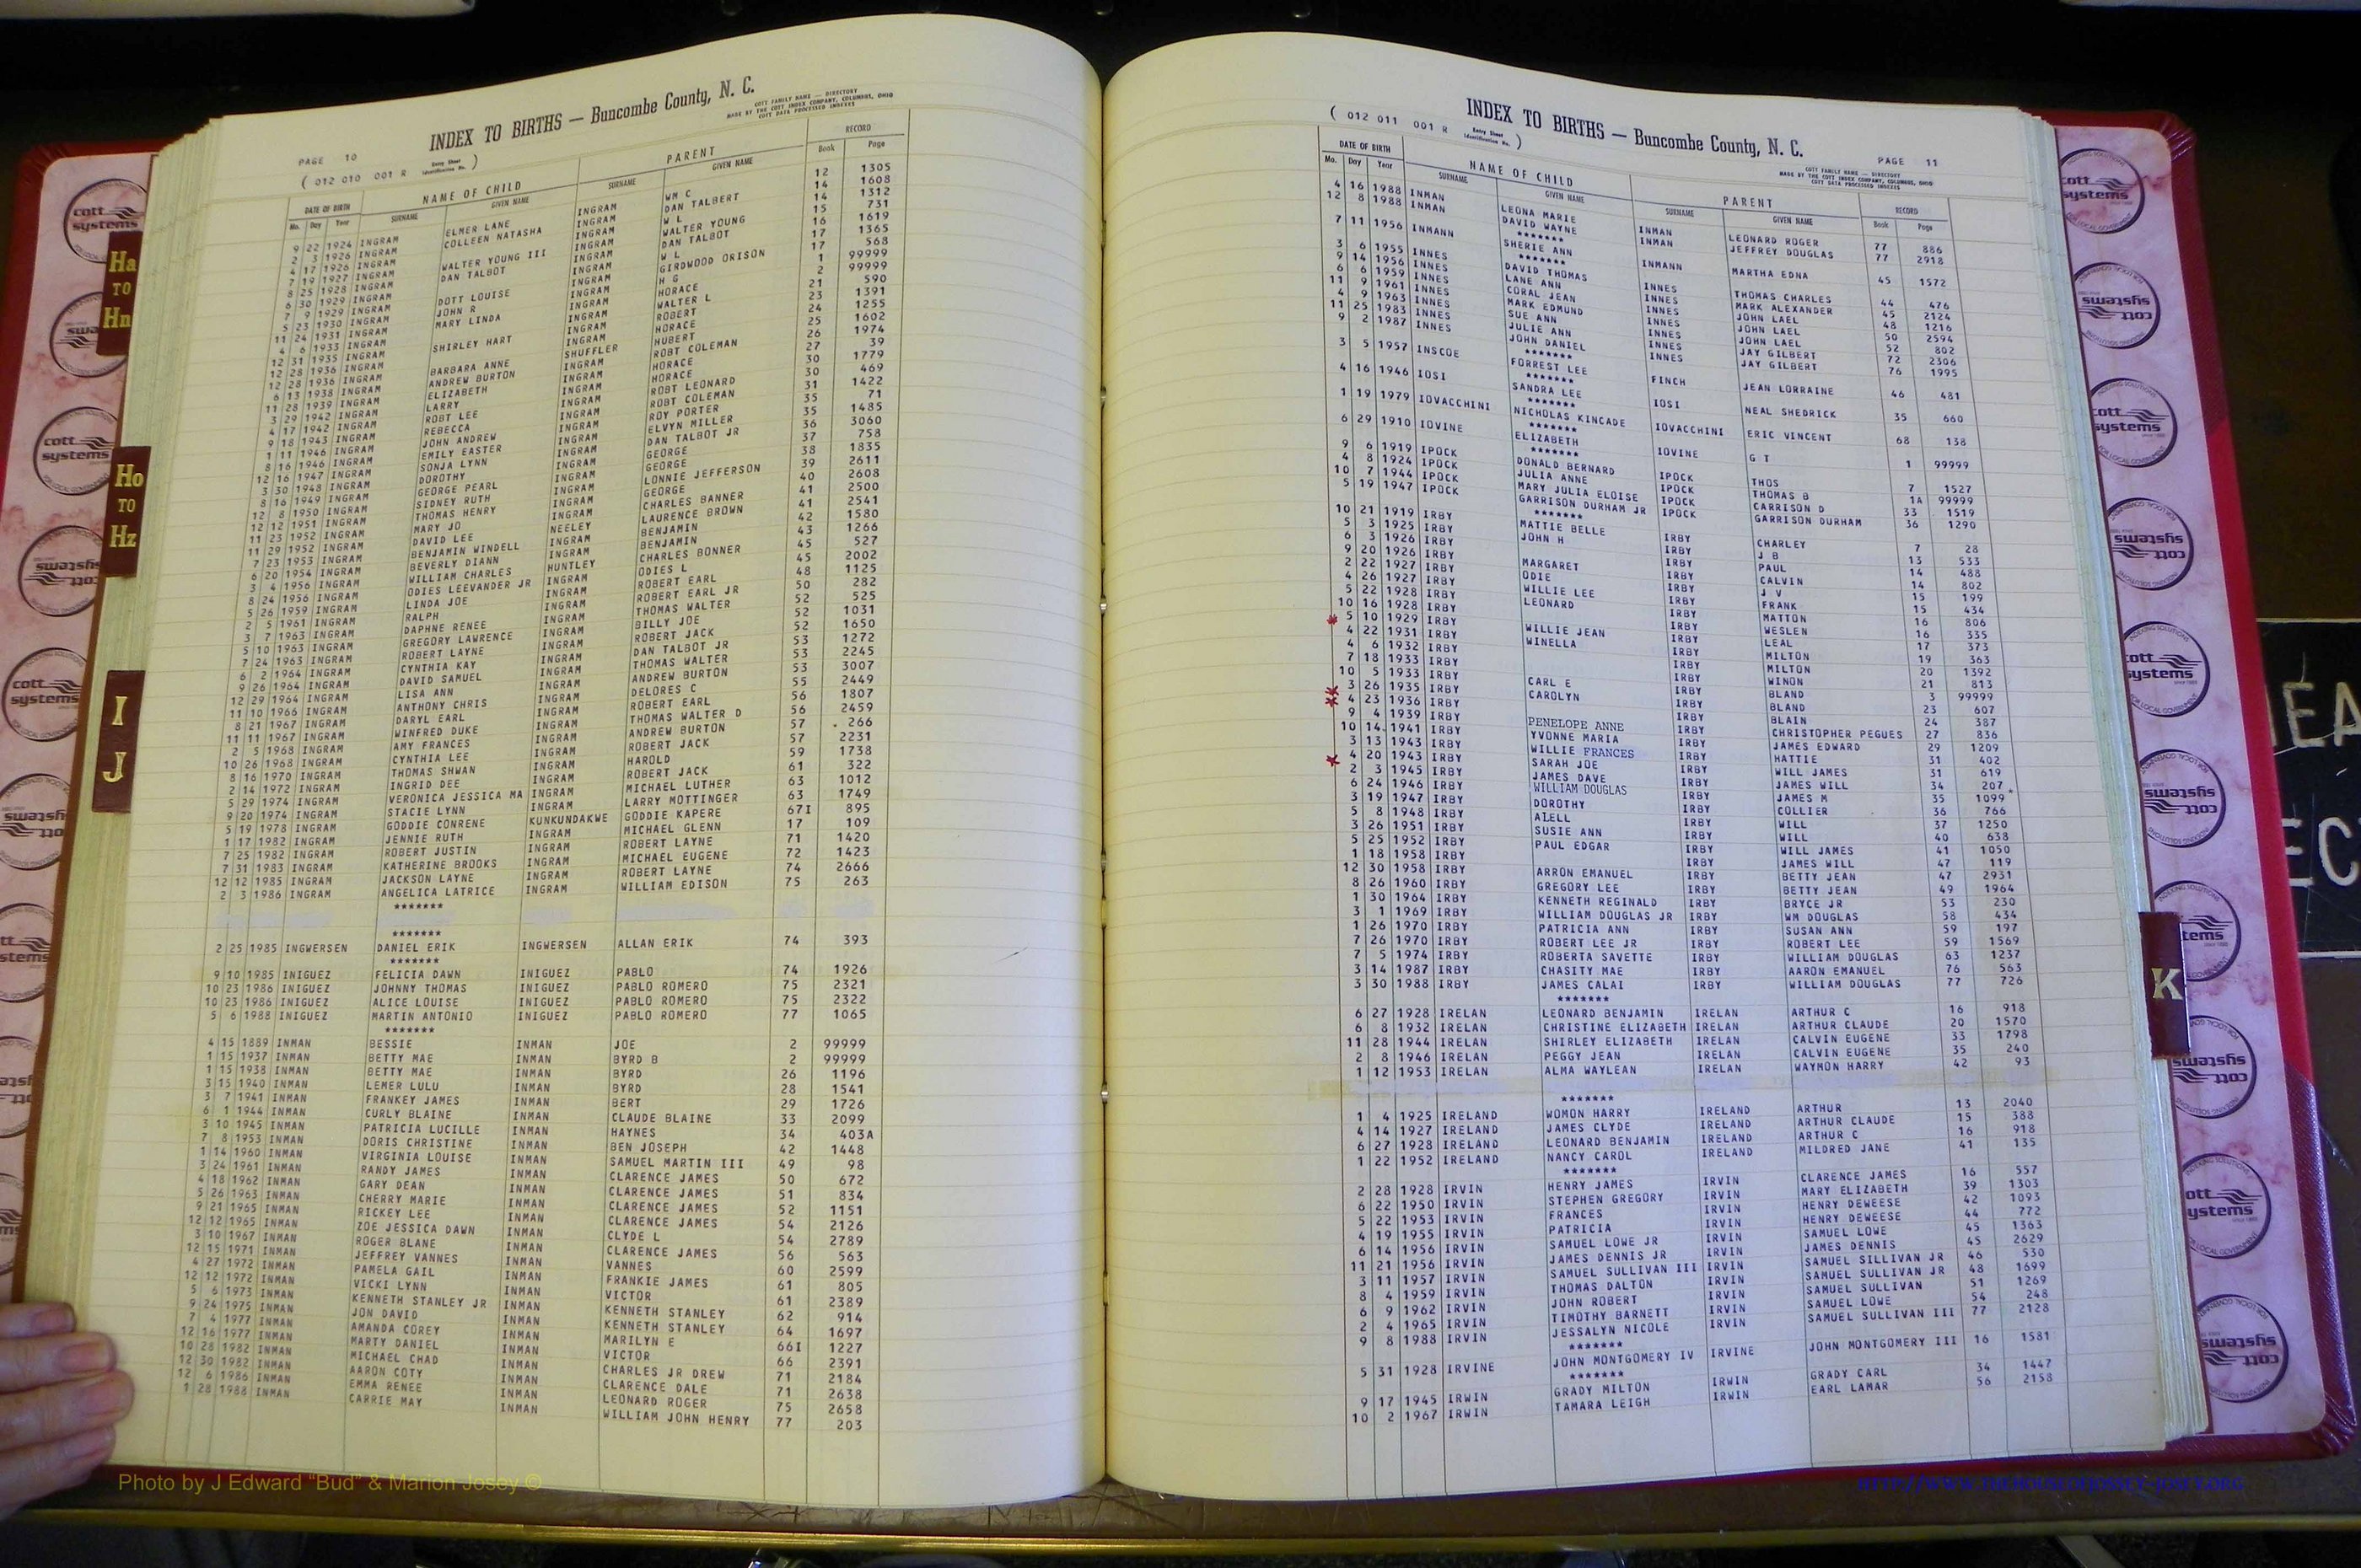 INDEX TO BIRTHS — Buncombe County, N. C.
COTT FAMILY NAME — DIRECTORY
MADE BY THE COTT INDEX COMPANY, COLUMBUS, OHIO
COTT DATA PROCESSED INDEXES
PAGE 10
( 012 010 001 R Entry Sheet Identification No. )
DATE OF BIRTH NAME OF CHILD PARENT RECORD
Mo. Day Year SURNAME GIVEN NAME SURNAME GIVEN NAME Book Page
9 22 1924 INGRAM ELMER LANE INGRAM WM C 12 1305
2 3 1926 INGRAM COLLEEN NATASHA INGRAM DAN TALBERT 14 1608
4 17 1926 INGRAM INGRAM W L 14 1312
7 19 1927 INGRAM WALTER YOUNG III INGRAM WALTER YOUNG 15 731
8 25 1928 INGRAM DAN TALBOT INGRAM DAN TALBOT 16 1619
6 30 1929 INGRAM INGRAM W L 17 1365
7 9 1929 INGRAM DOTT LOUISE INGRAM GIRDWOOD ORISON 17 568
5 23 1930 INGRAM JOHN R INGRAM H G 1 99999
11 24 1931 INGRAM MARY LINDA INGRAM HORACE 2 99999
4 6 1933 INGRAM INGRAM WALTER L 21 590
12 31 1935 INGRAM SHIRLEY HART INGRAM ROBERT 23 1391
12 28 1936 INGRAM INGRAM HORACE 24 1255
12 28 1936 INGRAM BARBARA ANNE SHUFFLER HUBERT 25 1602
6 13 1938 INGRAM ANDREW BURTON INGRAM ROBT COLEMAN 26 1974
11 28 1939 INGRAM ELIZABETH INGRAM HORACE 27 39
3 29 1942 INGRAM LARRY INGRAM HORACE 30 1779
4 17 1942 INGRAM ROBT LEE INGRAM ROBT LEONARD 30 469
9 18 1943 INGRAM REBECCA INGRAM ROBT COLEMAN 31 1422
1 11 1946 INGRAM JOHN ANDREW INGRAM ROY PORTER 35 71
8 16 1946 INGRAM EMILY EASTER INGRAM ELVYN MILLER 35 1485
12 16 1947 INGRAM SONJA LYNN INGRAM DAN TALBOT JR 36 3060
3 30 1948 INGRAM DOROTHY INGRAM GEORGE 37 758
8 16 1949 INGRAM GEORGE PEARL INGRAM GEORGE 38 1835
12 8 1950 INGRAM SIDNEY RUTH INGRAM LONNIE JEFFERSON 39 2611
12 12 1951 INGRAM THOMAS HENRY INGRAM GEORGE 40 2608
11 23 1952 INGRAM MARY JO INGRAM CHARLES BANNER 41 2500
11 29 1952 INGRAM DAVID LEE NEELEY LAURENCE BROWN 41 2541
7 23 1953 INGRAM BENJAMIN WINDELL INGRAM BENJAMIN 42 1580
6 20 1954 INGRAM BEVERLY DIANN INGRAM BENJAMIN 43 1266
3 4 1956 INGRAM WILLIAM CHARLES HUNTLEY CHARLES BONNER 45 527
8 24 1956 INGRAM ODIES LEEVANDER JR INGRAM ODIES L 45 2002
5 26 1959 INGRAM LINDA JOE INGRAM ROBERT EARL 48 1125
2 5 1961 INGRAM RALPH INGRAM ROBERT EARL JR 50 282
3 7 1963 INGRAM DAPHNE RENEE INGRAM THOMAS WALTER 52 525
5 10 1963 INGRAM GREGORY LAWRENCE INGRAM BILLY JOE 52 1031
7 24 1963 INGRAM ROBERT LAYNE INGRAM ROBERT JACK 52 1650
6 2 1964 INGRAM CYNTHIA KAY INGRAM DAN TALBOT JR 53 1272
9 26 1964 INGRAM DAVID SAMUEL INGRAM THOMAS WALTER 53 2245
12 29 1964 INGRAM LISA ANN INGRAM ANDREW BURTON 53 3007
11 10 1966 INGRAM ANTHONY CHRIS INGRAM DELORES C 55 2449
8 21 1967 INGRAM DARYL EARL INGRAM ROBERT EARL 56 1807
11 11 1967 INGRAM WINFRED DUKE INGRAM THOMAS WALTER D 56 2459
2 5 1968 INGRAM AMY FRANCES INGRAM ANDREW BURTON 57 266
10 26 1968 INGRAM CYNTHIA LEE INGRAM ROBERT JACK 57 2231
8 16 1970 INGRAM THOMAS SHWAN INGRAM HAROLD 59 1738
2 14 1972 INGRAM INGRID DEE INGRAM ROBERT JACK 61 322
5 29 1974 INGRAM VERONICA JESSICA MA INGRAM MICHAEL LUTHER 63 1012
9 20 1974 INGRAM STACIE LYNN INGRAM LARRY MOTTINGER 63 1749
5 19 1978 INGRAM GODDIE CONRENE KUNKUNDAKWE GODDIE KAPERE 67I 895
1 17 1982 INGRAM JENNIE RUTH INGRAM MICHAEL GLENN 17 109
7 25 1982 INGRAM ROBERT JUSTIN INGRAM ROBERT LAYNE 71 1420
7 31 1983 INGRAM KATHERINE BROOKS INGRAM MICHAEL EUGENE 72 1423
12 12 1985 INGRAM JACKSON LAYNE INGRAM ROBERT LAYNE 74 2666
2 3 1986 INGRAM ANGELICA LATRICE INGRAM WILLIAM EDISON 75 263
*******
*******
2 25 1985 INGWERSEN DANIEL ERIK INGWERSEN ALLAN ERIK 74 393
*******
9 10 1985 INIGUEZ FELICIA DAWN INIGUEZ PABLO 74 1926
10 23 1986 INIGUEZ JOHNNY THOMAS INIGUEZ PABLO ROMERO 75 2321
10 23 1986 INIGUEZ ALICE LOUISE INIGUEZ PABLO ROMERO 75 2322
5 6 1988 INIGUEZ MARTIN ANTONIO INIGUEZ PABLO ROMERO 77 1065
*******
4 15 1889 INMAN BESSIE INMAN JOE 2 99999
1 15 1937 INMAN BETTY MAE INMAN BYRD B 2 99999
1 15 1938 INMAN BETTY MAE INMAN BYRD 26 1196
3 15 1940 INMAN LEMER LULU INMAN BYRD 28 1541
3 7 1941 INMAN FRANKEY JAMES INMAN BERT 29 1726
6 1 1944 INMAN CURLY BLAINE INMAN CLAUDE BLAINE 33 2099
3 10 1945 INMAN PATRICIA LUCILLE INMAN HAYNES 34 403A
7 8 1953 INMAN DORIS CHRISTINE INMAN BEN JOSEPH 42 1448
1 14 1960 INMAN VIRGINIA LOUISE INMAN SAMUEL MARTIN III 49 98
3 24 1961 INMAN RANDY JAMES INMAN CLARENCE JAMES 50 672
4 18 1962 INMAN GARY DEAN INMAN CLARENCE JAMES 51 834
5 26 1963 INMAN CHERRY MARIE INMAN CLARENCE JAMES 52 1151
9 21 1965 INMAN RICKEY LEE INMAN CLARENCE JAMES 54 2126
12 12 1965 INMAN ZOE JESSICA DAWN INMAN CLYDE L 54 2789
3 10 1967 INMAN ROGER BLANE INMAN CLARENCE JAMES 56 563
12 15 1971 INMAN JEFFREY VANNES INMAN VANNES 60 2599
4 27 1972 INMAN PAMELA GAIL INMAN FRANKIE JAMES 61 805
12 12 1972 INMAN VICKI LYNN INMAN VICTOR 61 2389
5 6 1973 INMAN KENNETH STANLEY JR INMAN KENNETH STANLEY 62 914
9 24 1975 INMAN JON DAVID INMAN KENNETH STANLEY 64 1697
7 4 1977 INMAN AMANDA COREY INMAN MARILYN E 66I 1227
12 16 1977 INMAN MARTY DANIEL INMAN VICTOR 66 2391
10 28 1982 INMAN MICHAEL CHAD INMAN CHARLES JR DREW 71 2184
12 30 1982 INMAN AARON COTY INMAN CLARENCE DALE 71 2638
12 6 1986 INMAN EMMA RENEE INMAN LEONARD ROGER 75 2658
1 28 1988 INMAN CARRIE MAY INMAN WILLIAM JOHN HENRY 77 203
INDEX TO BIRTHS — Buncombe County, N. C.
( 012 011 001 R Entry Sheet Identification No. )
PAGE 11
COTT FAMILY NAME — DIRECTORY
MADE BY THE COTT INDEX COMPANY, COLUMBUS, OHIO
COTT DATA PROCESSED INDEXES
DATE OF BIRTH NAME OF CHILD PARENT RECORD
Mo. Day Year SURNAME GIVEN NAME SURNAME GIVEN NAME Book Page
4 16 1988 INMAN LEONA MARIE INMAN LEONARD ROGER 77 886
12 8 1988 INMAN DAVID WAYNE INMAN JEFFREY DOUGLAS 77 2918
*******
7 11 1956 INMANN SHERIE ANN INMANN MARTHA EDNA 45 1572
*******
3 6 1955 INNES DAVID THOMAS INNES THOMAS CHARLES 44 476
9 14 1956 INNES LANE ANN INNES MARK ALEXANDER 45 2124
6 6 1959 INNES CORAL JEAN INNES JOHN LAEL 48 1216
11 9 1961 INNES MARK EDMUND INNES JOHN LAEL 50 2594
4 9 1963 INNES SUE ANN INNES JOHN LAEL 52 802
11 25 1983 INNES JULIE ANN INNES JAY GILBERT 72 2306
9 2 1987 INNES JOHN DANIEL INNES JAY GILBERT 76 1995
*******
3 5 1957 INSCOE FORREST LEE FINCH JEAN LORRAINE 46 481
*******
4 16 1946 IOSI SANDRA LEE IOSI NEAL SHEDRICK 35 660
*******
1 19 1979 IOVACCHINI NICHOLAS KINCADE IOVACCHINI ERIC VINCENT 68 138
*******
6 29 1910 IOVINE ELIZABETH IOVINE G T 1 99999
*******
9 6 1919 IPOCK DONALD BERNARD IPOCK THOS 7 1527
4 8 1924 IPOCK JULIA ANNE IPOCK THOMAS B 1A 99999
10 7 1944 IPOCK MARY JULIA ELOISE IPOCK CARRISON D 33 1519
5 19 1947 IPOCK GARRISON DURHAM JR IPOCK GARRISON DURHAM 36 1290
*******
10 21 1919 IRBY MATTIE BELLE IRBY CHARLEY 7 28
5 3 1925 IRBY JOHN H IRBY J B 13 533
6 3 1926 IRBY IRBY PAUL 14 488
9 20 1926 IRBY MARGARET IRBY CALVIN 14 802
2 22 1927 IRBY ODIE IRBY J V 15 199
4 26 1927 IRBY WILLIE LEE IRBY FRANK 15 434
5 22 1928 IRBY LEONARD IRBY MATTON 16 806
10 16 1928 IRBY IRBY WESLEN 16 335
5 10 1929 IRBY WILLIE JEAN IRBY LEAL 17 373
4 22 1931 IRBY WINELLA IRBY MILTON 19 363
4 6 1932 IRBY IRBY MILTON 20 1392
7 18 1933 IRBY IRBY WINON 21 813
10 5 1933 IRBY CARL E IRBY BLAND 3 99999
3 26 1935 IRBY CAROLYN IRBY BLAND 23 607
4 23 1936 IRBY IRBY BLAIN 24 387
9 4 1939 IRBY PENELOPE ANNE IRBY CHRISTOPHER PEGUES 27 836
10 14 1941 IRBY YVONNE MARIA IRBY JAMES EDWARD 29 1209
3 13 1943 IRBY WILLIE FRANCES IRBY HATTIE 31 402
4 20 1943 IRBY SARAH JOE IRBY WILL JAMES 31 619
2 3 1945 IRBY JAMES DAVE IRBY JAMES WILL 34 207
6 24 1946 IRBY WILLIAM DOUGLAS IRBY JAMES M 35 1099
3 19 1947 IRBY DOROTHY IRBY COLLIER 36 766
5 8 1948 IRBY ALELL IRBY WILL 37 1250
3 26 1951 IRBY SUSIE ANN IRBY WILL 40 638
5 25 1952 IRBY PAUL EDGAR IRBY WILL JAMES 41 1050
1 18 1958 IRBY IRBY JAMES WILL 47 119
12 30 1958 IRBY ARRON EMANUEL IRBY BETTY JEAN 47 2931
8 26 1960 IRBY GREGORY LEE IRBY BETTY JEAN 49 1964
1 30 1964 IRBY KENNETH REGINALD IRBY BRYCE JR 53 230
3 1 1969 IRBY WILLIAM DOUGLAS JR IRBY WM DOUGLAS 58 434
1 26 1970 IRBY PATRICIA ANN IRBY SUSAN ANN 59 197
7 26 1970 IRBY ROBERT LEE JR IRBY ROBERT LEE 59 1569
7 5 1974 IRBY ROBERTA SAVETTE IRBY WILLIAM DOUGLAS 63 1237
3 14 1987 IRBY CHASITY MAE IRBY AARON EMANUEL 76 563
3 30 1988 IRBY JAMES CALAI IRBY WILLIAM DOUGLAS 77 726
*******
6 27 1928 IRELAN LEONARD BENJAMIN IRELAN ARTHUR C 16 918
6 8 1932 IRELAN CHRISTINE ELIZABETH IRELAN ARTHUR CLAUDE 20 1570
11 28 1944 IRELAN SHIRLEY ELIZABETH IRELAN CALVIN EUGENE 33 1798
2 8 1946 IRELAN PEGGY JEAN IRELAN CALVIN EUGENE 35 240
1 12 1953 IRELAN ALMA WAYLEAN IRELAN WAYMON HARRY 42 93
*******
1 4 1925 IRELAND WOMON HARRY IRELAND ARTHUR 13 2040
4 14 1927 IRELAND JAMES CLYDE IRELAND ARTHUR CLAUDE 15 388
6 27 1928 IRELAND LEONARD BENJAMIN IRELAND ARTHUR C 16 918
1 22 1952 IRELAND NANCY CAROL IRELAND MILDRED JANE 41 135
*******
2 28 1928 IRVIN HENRY JAMES IRVIN CLARENCE JAMES 16 557
6 22 1950 IRVIN STEPHEN GREGORY IRVIN MARY ELIZABETH 39 1303
5 22 1953 IRVIN FRANCES IRVIN HENRY DEWEESE 42 1093
4 19 1955 IRVIN PATRICIA IRVIN HENRY DEWEESE 44 772
6 14 1956 IRVIN SAMUEL LOWE JR IRVIN SAMUEL LOWE 45 1363
11 21 1956 IRVIN JAMES DENNIS JR IRVIN JAMES DENNIS 45 2629
3 11 1957 IRVIN SAMUEL SULLIVAN III IRVIN SAMUEL SILLIVAN JR 46 530
8 4 1959 IRVIN THOMAS DALTON IRVIN SAMUEL SULLIVAN JR 48 1699
6 9 1962 IRVIN JOHN ROBERT IRVIN SAMUEL SULLIVAN 51 1269
2 4 1965 IRVIN TIMOTHY BARNETT IRVIN SAMUEL LOWE 54 248
9 8 1988 IRVIN JESSALYN NICOLE IRVIN SAMUEL SULLIVAN III 77 2128
*******
5 31 1928 IRVINE JOHN MONTGOMERY IV IRVINE JOHN MONTGOMERY III 16 1581
*******
9 17 1945 IRWIN GRADY MILTON IRWIN GRADY CARL 34 1447
10 2 1967 IRWIN TAMARA LEIGH IRWIN EARL LAMAR 56 2158
Ha TO Hn
Ho TO Hz
I J
K
cott systems
Photo by J Edward "Bud" & Marion Josey ©
HTTP://WWW.THEHOUSEOFJOSSEY-JOSEY.ORG